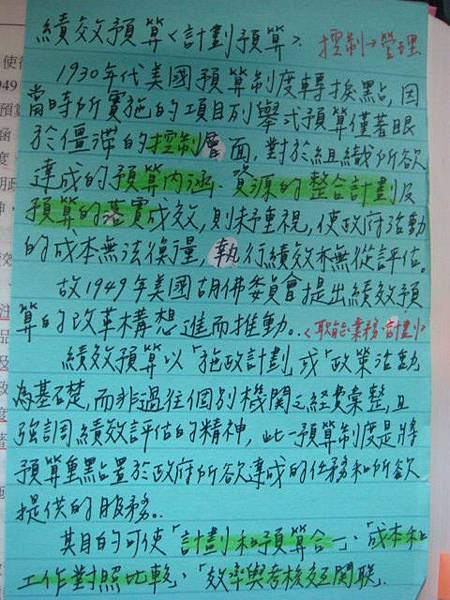 績效預算<計劃預算>. 控制→管理
1930年代美國預算制度轉捩點,因
當時所實施的項目列舉式預算僅著眼
於僵滯的控制層面,對於組織所欲
達成的預算內涵、資源的整合計劃及
預算的落實成效,則未重視,使政府活動
的成本無法衡量,執行績效亦無從評估。
故1949年美國胡佛委員會提出績效預
算的改革構想進而推動..<職能.業務.計劃>
績效預算以「施政計劃」或「政策活動」
為基礎,而非過往個別機關之經費彙整,且
強調績效評估的精神,此一預算制度是將
預算重點置於政府所欲達成的任務和所欲
提供的服務..
其目的可使「計劃和預算合一」、「成本和
工作對照比較」、「效率與考核交互關聯」.
使行
949
預算
函
度
胡政
效
注
品
及
政
度
著